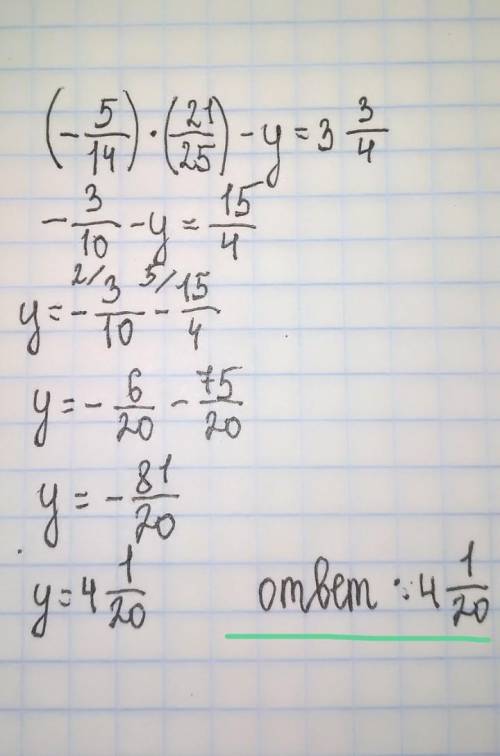 (-5/14)·(21/25)-y=3 3/4
-3/10-y=15/4
y=-2/3/10-5/15/4
y=-6/20-75/20
y=-81/20
y=4 1/20
ответ: 4 1/20